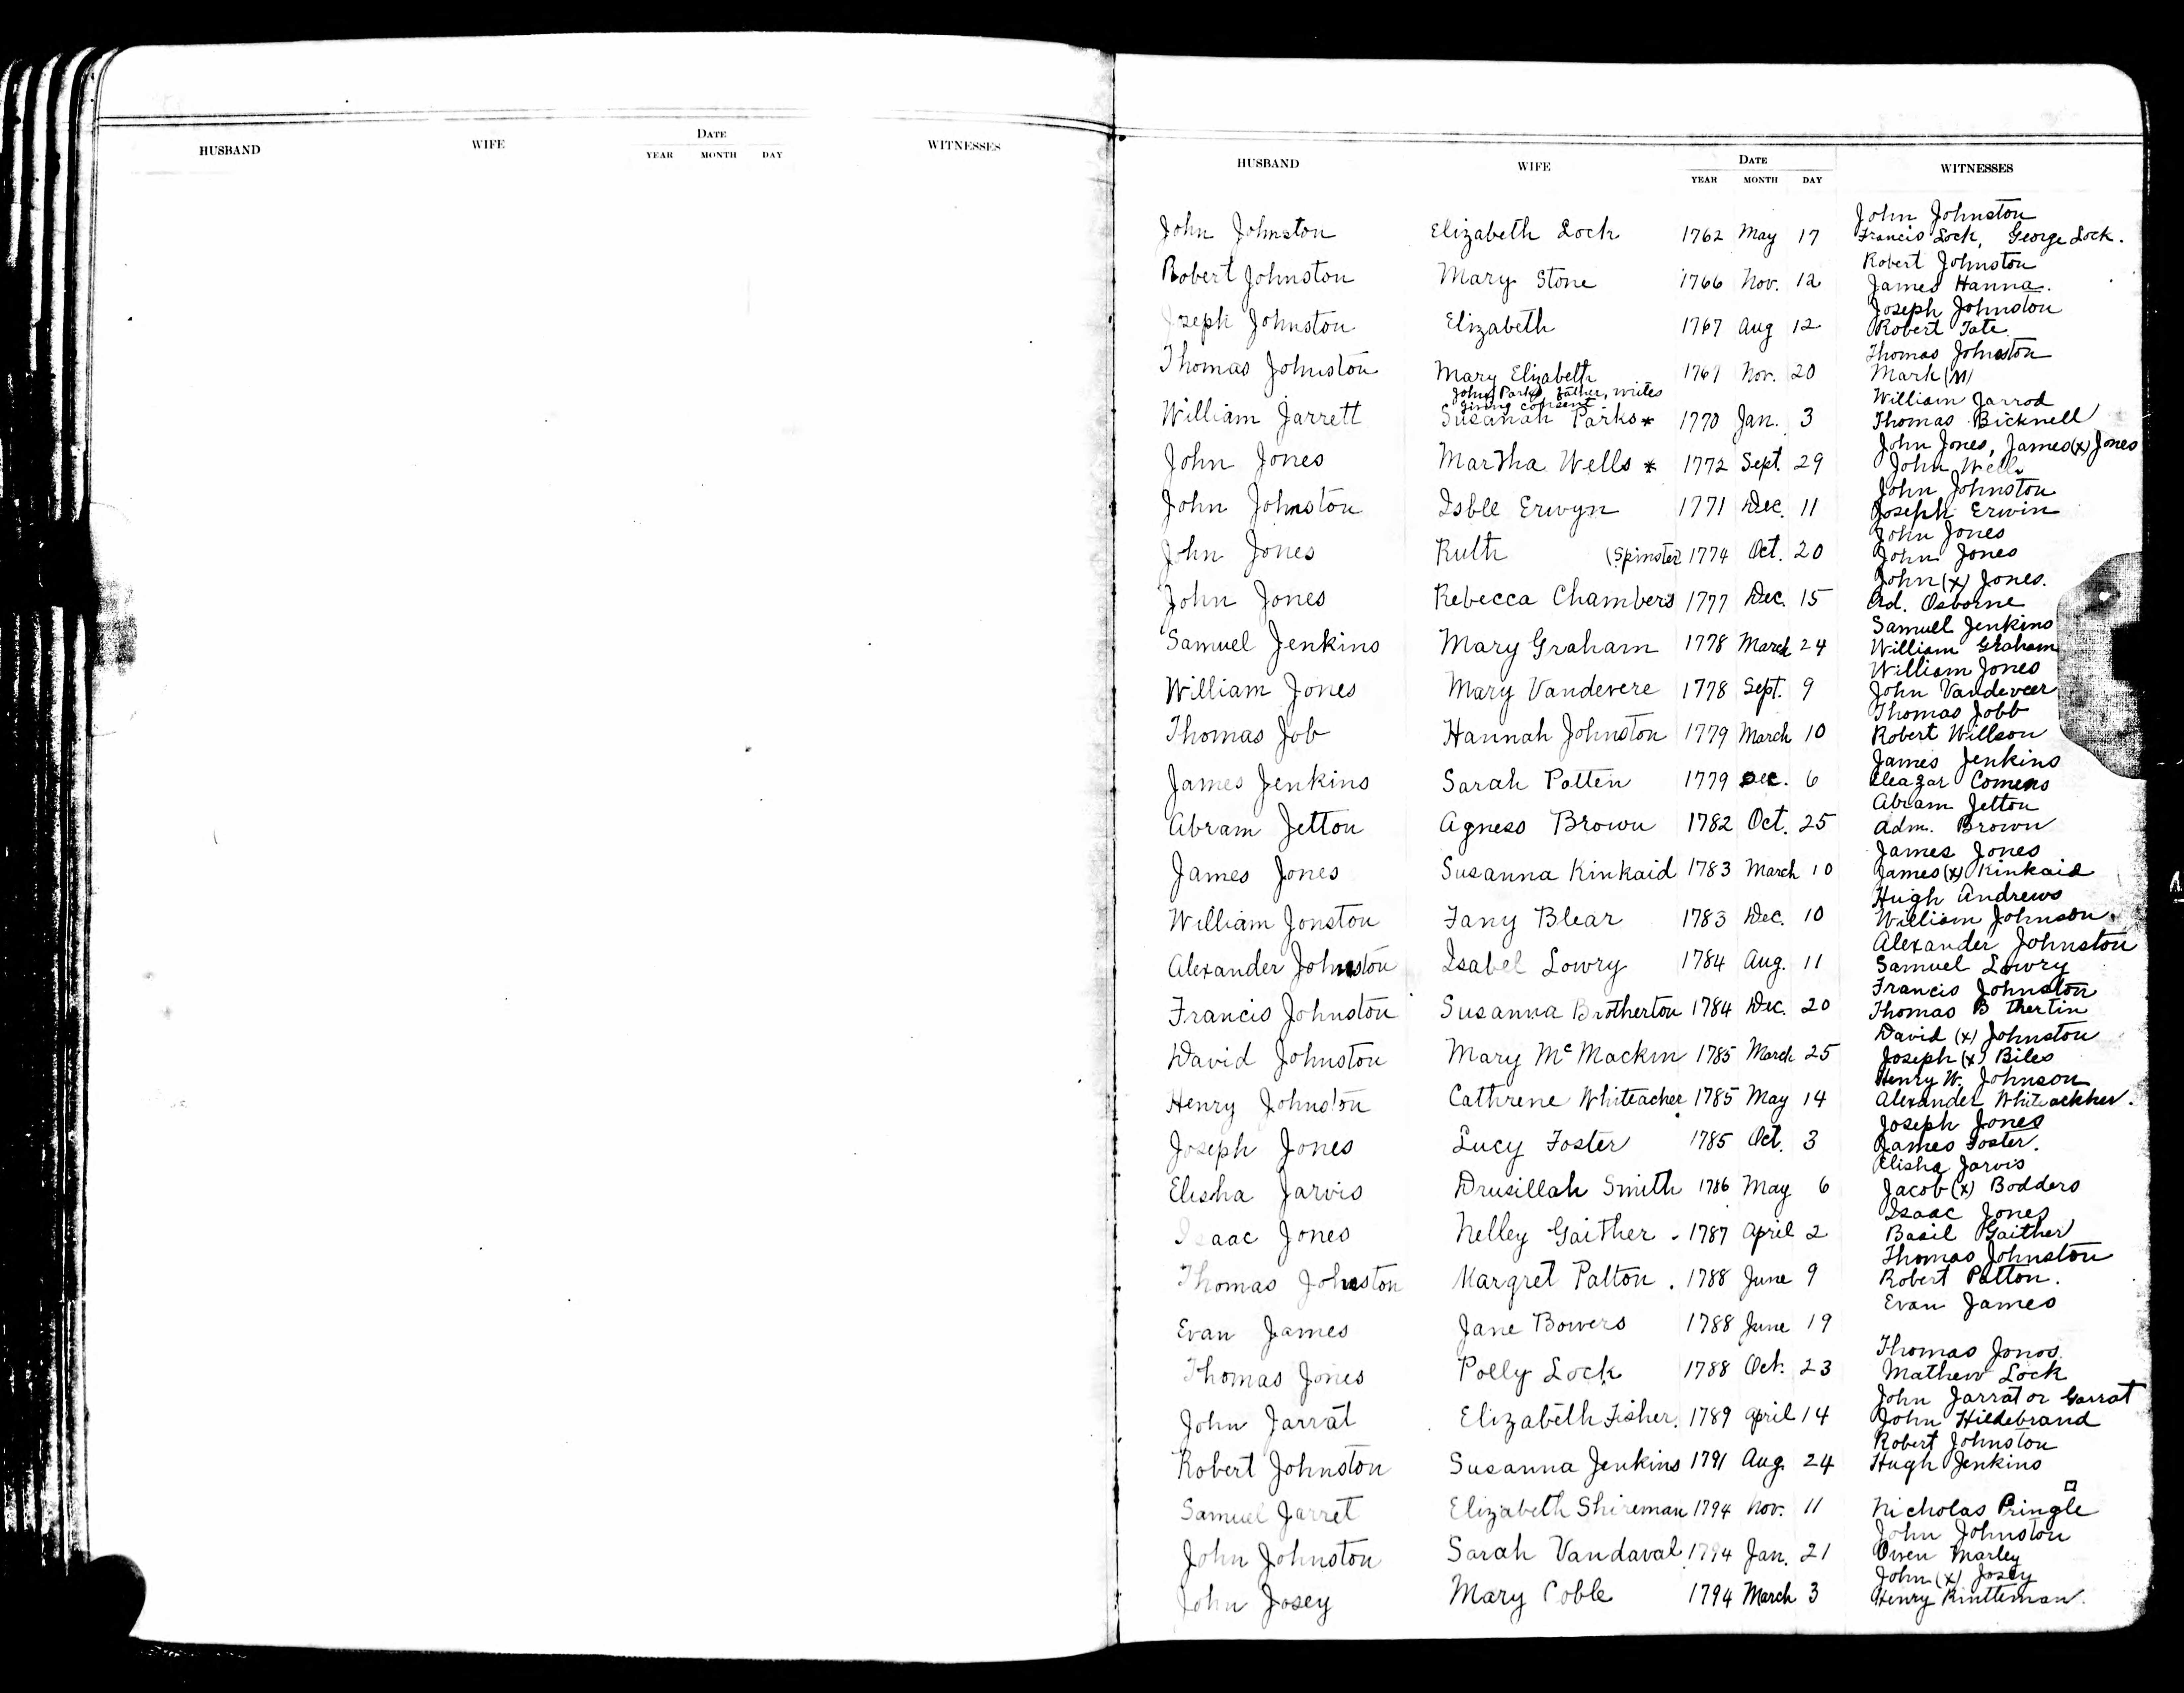 HUSBAND WIFE DATE WITNESSES
YEAR MONTH DAY
HUSBAND WIFE DATE WITNESSES
YEAR MONTH DAY
John Johnston
John Johnston Elizabeth Lock 1762 May 17 Francis Lock, George Lock.
Robert Johnston
Robert Johnston Mary Stone 1766 Nov. 12 James Hanna.
Joseph Johnston
Joseph Johnston Elizabeth 1767 Aug 12 Robert Tate
Thomas Johnston
Thomas Johnston Mary Elizabeth Nov. 20 Mark (M)
John Parks, father, writes
giving consent William Jarrod
William Jarrett Susanah Parks* 1770 Jan. 3 Thomas Bicknell
John Jones, James (x) Jones
John Jones Martha Wells * 1772 Sept. 29 John Wells
John Johnston
John Johnston Isble Erwyn 1771 Dec. 11 Joseph Erwin
John Jones
John Jones Ruth (Spinster 1774 Oct. 20 John Jones
John (x) Jones.
John Jones Rebecca Chambers 1777 Dec. 15 Ad. Osborne
Samuel Jenkins
Samuel Jenkins Mary Graham 1778 March 24 William Graham
William Jones
William Jones Mary Vandevere 1778 Sept. 9 John Vandeveer
Thomas Jobb
Thomas Job Hannah Johnston 1779 March 10 Robert Willson
James Jenkins
James Jenkins Sarah Patten 1779 Dec. 6 Eleazar Comens
Abram Jetton
Abram Jetton Agness Brown 1782 Oct. 25 Adm. Brown
James Jones
James Jones Susanna Kinkaid 1783 March 10 James (x) Kinkaid
Hugh Andrews
William Jonston Fany Blear 1783 Dec. 10 William Johnson.
Alexander Johnston
Alexander Johnston Isabel Lowry 1784 Aug. 11 Samuel Lowry
Francis Johnston
Francis Johnston Susanna Brotherton 1784 Dec. 20 Thomas B thertin
David (x) Johnston
David Johnston Mary McMackin 1785 March 25 Joseph (x) Biles
Henry W. Johnson
Henry Johnston Cathrene Whiteacher 1785 May 14 Alexander Whiteackher.
Joseph Jones
Joseph Jones Lucy Foster 1785 Oct. 3 James Foster.
Elisha Jarvis
Elisha Jarvis Drusillah Smith 1786 May 6 Jacob (x) Bodders
Isaac Jones
Isaac Jones Nelley Gaither - 1787 April 2 Basil Gaither
Thomas Johnston
Thomas Johnston Margret Patton. 1788 June 9 Robert Patton.
Evan James
Evan James Jane Bowers 1788 June 19
Thomas Jonos.
Thomas Jones Polly Lock 1788 Oct. 23 Mathew Lock
John Jarrat or Garrat
John Jarrat Elizabeth Fisher. 1789 April 14 John Hildebrand
Robert Johnston
Robert Johnston Susanna Jenkins 1791 Aug. 24 Hugh Jenkins
Samuel Jarret Elizabeth Shireman 1794 Nov. 11 Nicholas Pringle
John Johnston
John Johnston Sarah Vandaval 1794 Jan. 21 Owen Marley
John (x) Josey
John Josey Mary Coble 1794 March 3 Henry